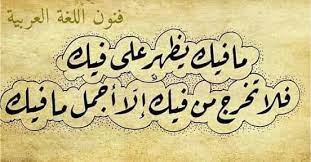 فنون اللغة العربية
ما فيك يظهر على فيك
فلا تخرج من فيك إلا أجمل ما فيك